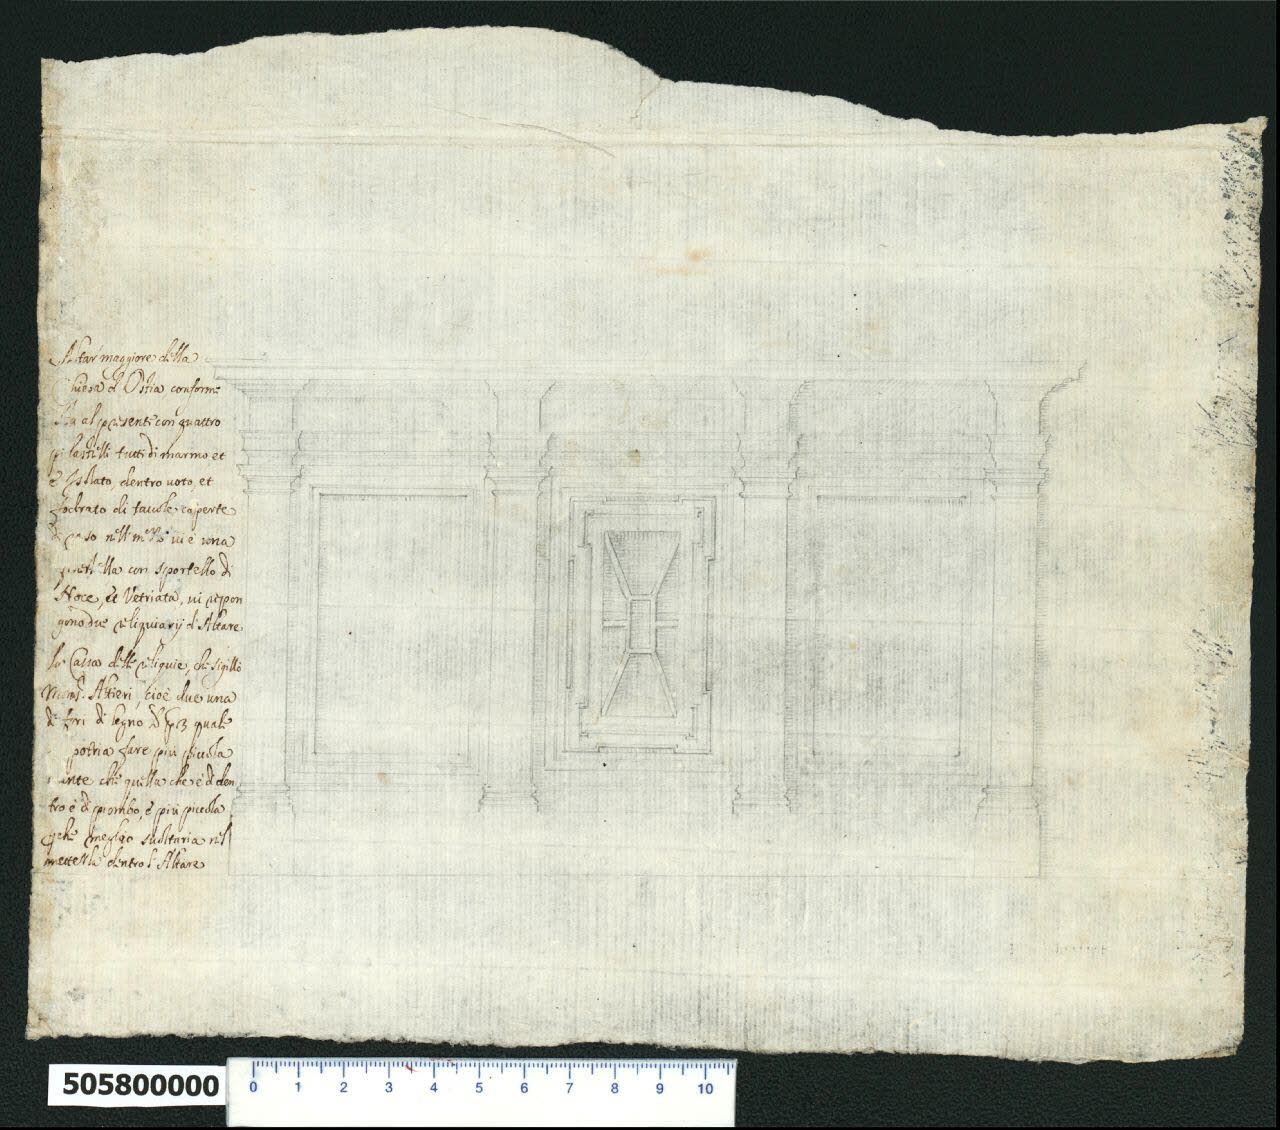 Altar maggiore della
Chiesa d'Ostia conforme
sta al presente con quattro
pilastrelli tutti di marmo, et
è Isolato, dentro voto, et
fodrato di tavole coperte
nell mezo vi è una
con sportello di
Noce, et Vetriata, vi ripon
gono due reliquiarij d'Altare
la Cassa delle reliquie, che sigillò
Mons.r Altieri, cioè due una
di fori di legno qual'
potria fare più piccola
che quella che è di den
tro è di piombo, è più piccola
meglio nel
metterla dentro l'Altare
505800000
0 1 2 3 4 5 6 7 8 9 10